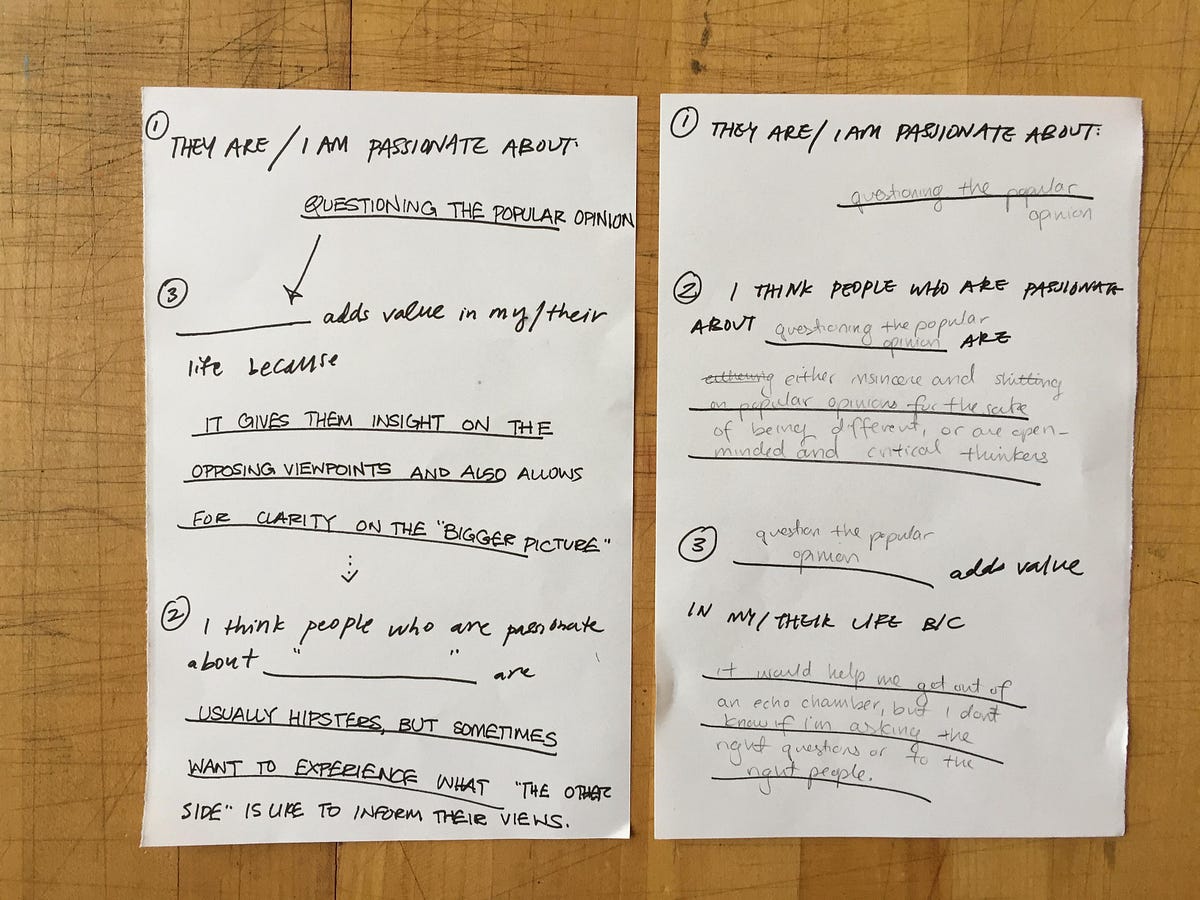 ①
THEY ARE / I AM PASSIONATE ABOUT:
QUESTIONING THE POPULAR OPINION
③
adds value in my/their
life because
IT GIVES THEM INSIGHT ON THE
OPPOSING VIEWPOINTS AND ALSO ALLOWS
FOR CLARITY ON THE "BIGGER PICTURE"
②
I think people who are passionate
about " " are
USUALLY HIPSTERS, BUT SOMETIMES
WANT TO EXPERIENCE WHAT "THE OTHER
SIDE" IS LIKE TO INFORM THEIR VIEWS.
① THEY ARE / I AM PASSIONATE ABOUT:
questioning the popular
opinion
② I THINK PEOPLE WHO ARE PASSIONATE
ABOUT questioning the popular
opinion ARE
either insincere and shitting
on popular opinions for the sake
of being different, or are open-
minded and critical thinkers
③ question the popular
opinion
adds value
IN MY/THEIR LIFE B/C
it would help me get out of
an echo chamber, but I don't
know if i'm asking the
right questions or to the
right people.